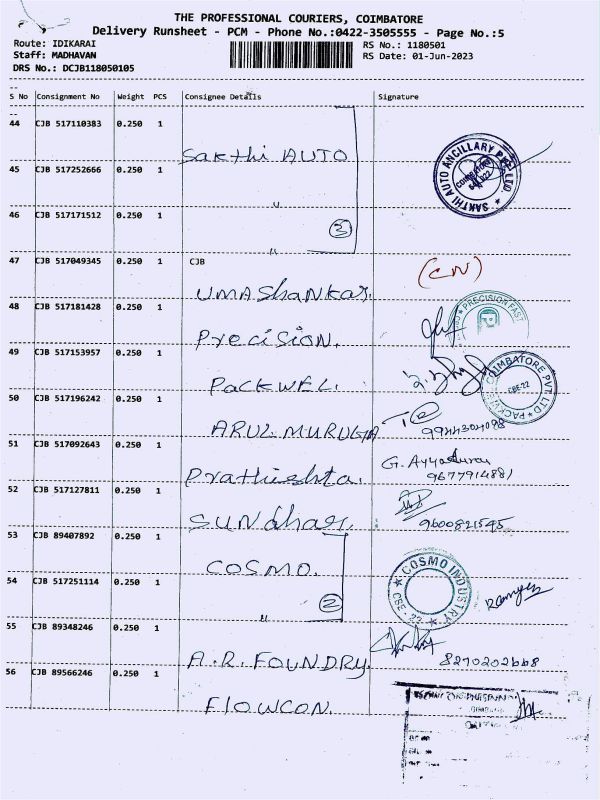 THE PROFESSIONAL COURIERS, COIMBATORE
Delivery Runsheet - PCM - Phone No.:0422-3505555 - Page No.:5
Route: IDIKARAI RS No.: 1180501
Staff: MADHAVAN RS Date: 01-Jun-2023
DRS No.: DCJB118050105
S No Consignment No Weight PCS Consignee Details Signature
44 CJB 517110383 0.250 1
Sakthi AUTO
SAKTHI AUTO ANCILLARY PVT LTD
COIMBATORE
45 CJB 517252666 0.250 1
"
46 CJB 517171512 0.250 1
" 3
47 CJB 517049345 0.250 1 CJB
UMAShANKAR. (CN)
48 CJB 517181428 0.250 1
PRECISION FAST
Precision.
49 CJB 517153957 0.250 1
PACKWEL.
COIMBATORE PVT LTD
CBE-22
50 CJB 517196242 0.250 1
ARUL MURUGA 9944304098
51 CJB 517092643 0.250 1
Prathishta. G. Ayyadurai
9677914881
52 CJB 517127811 0.250 1
SUNdhar. 9600821545
53 CJB 89407892 0.250 1
COSMO.
COSMO INDUSTRY
CBE-22
54 CJB 517251114 0.250 1
" 2
55 CJB 89348246 0.250 1
A.R. FOUNDRY. 8270202668
56 CJB 89566246 0.250 1
FLOWCON.